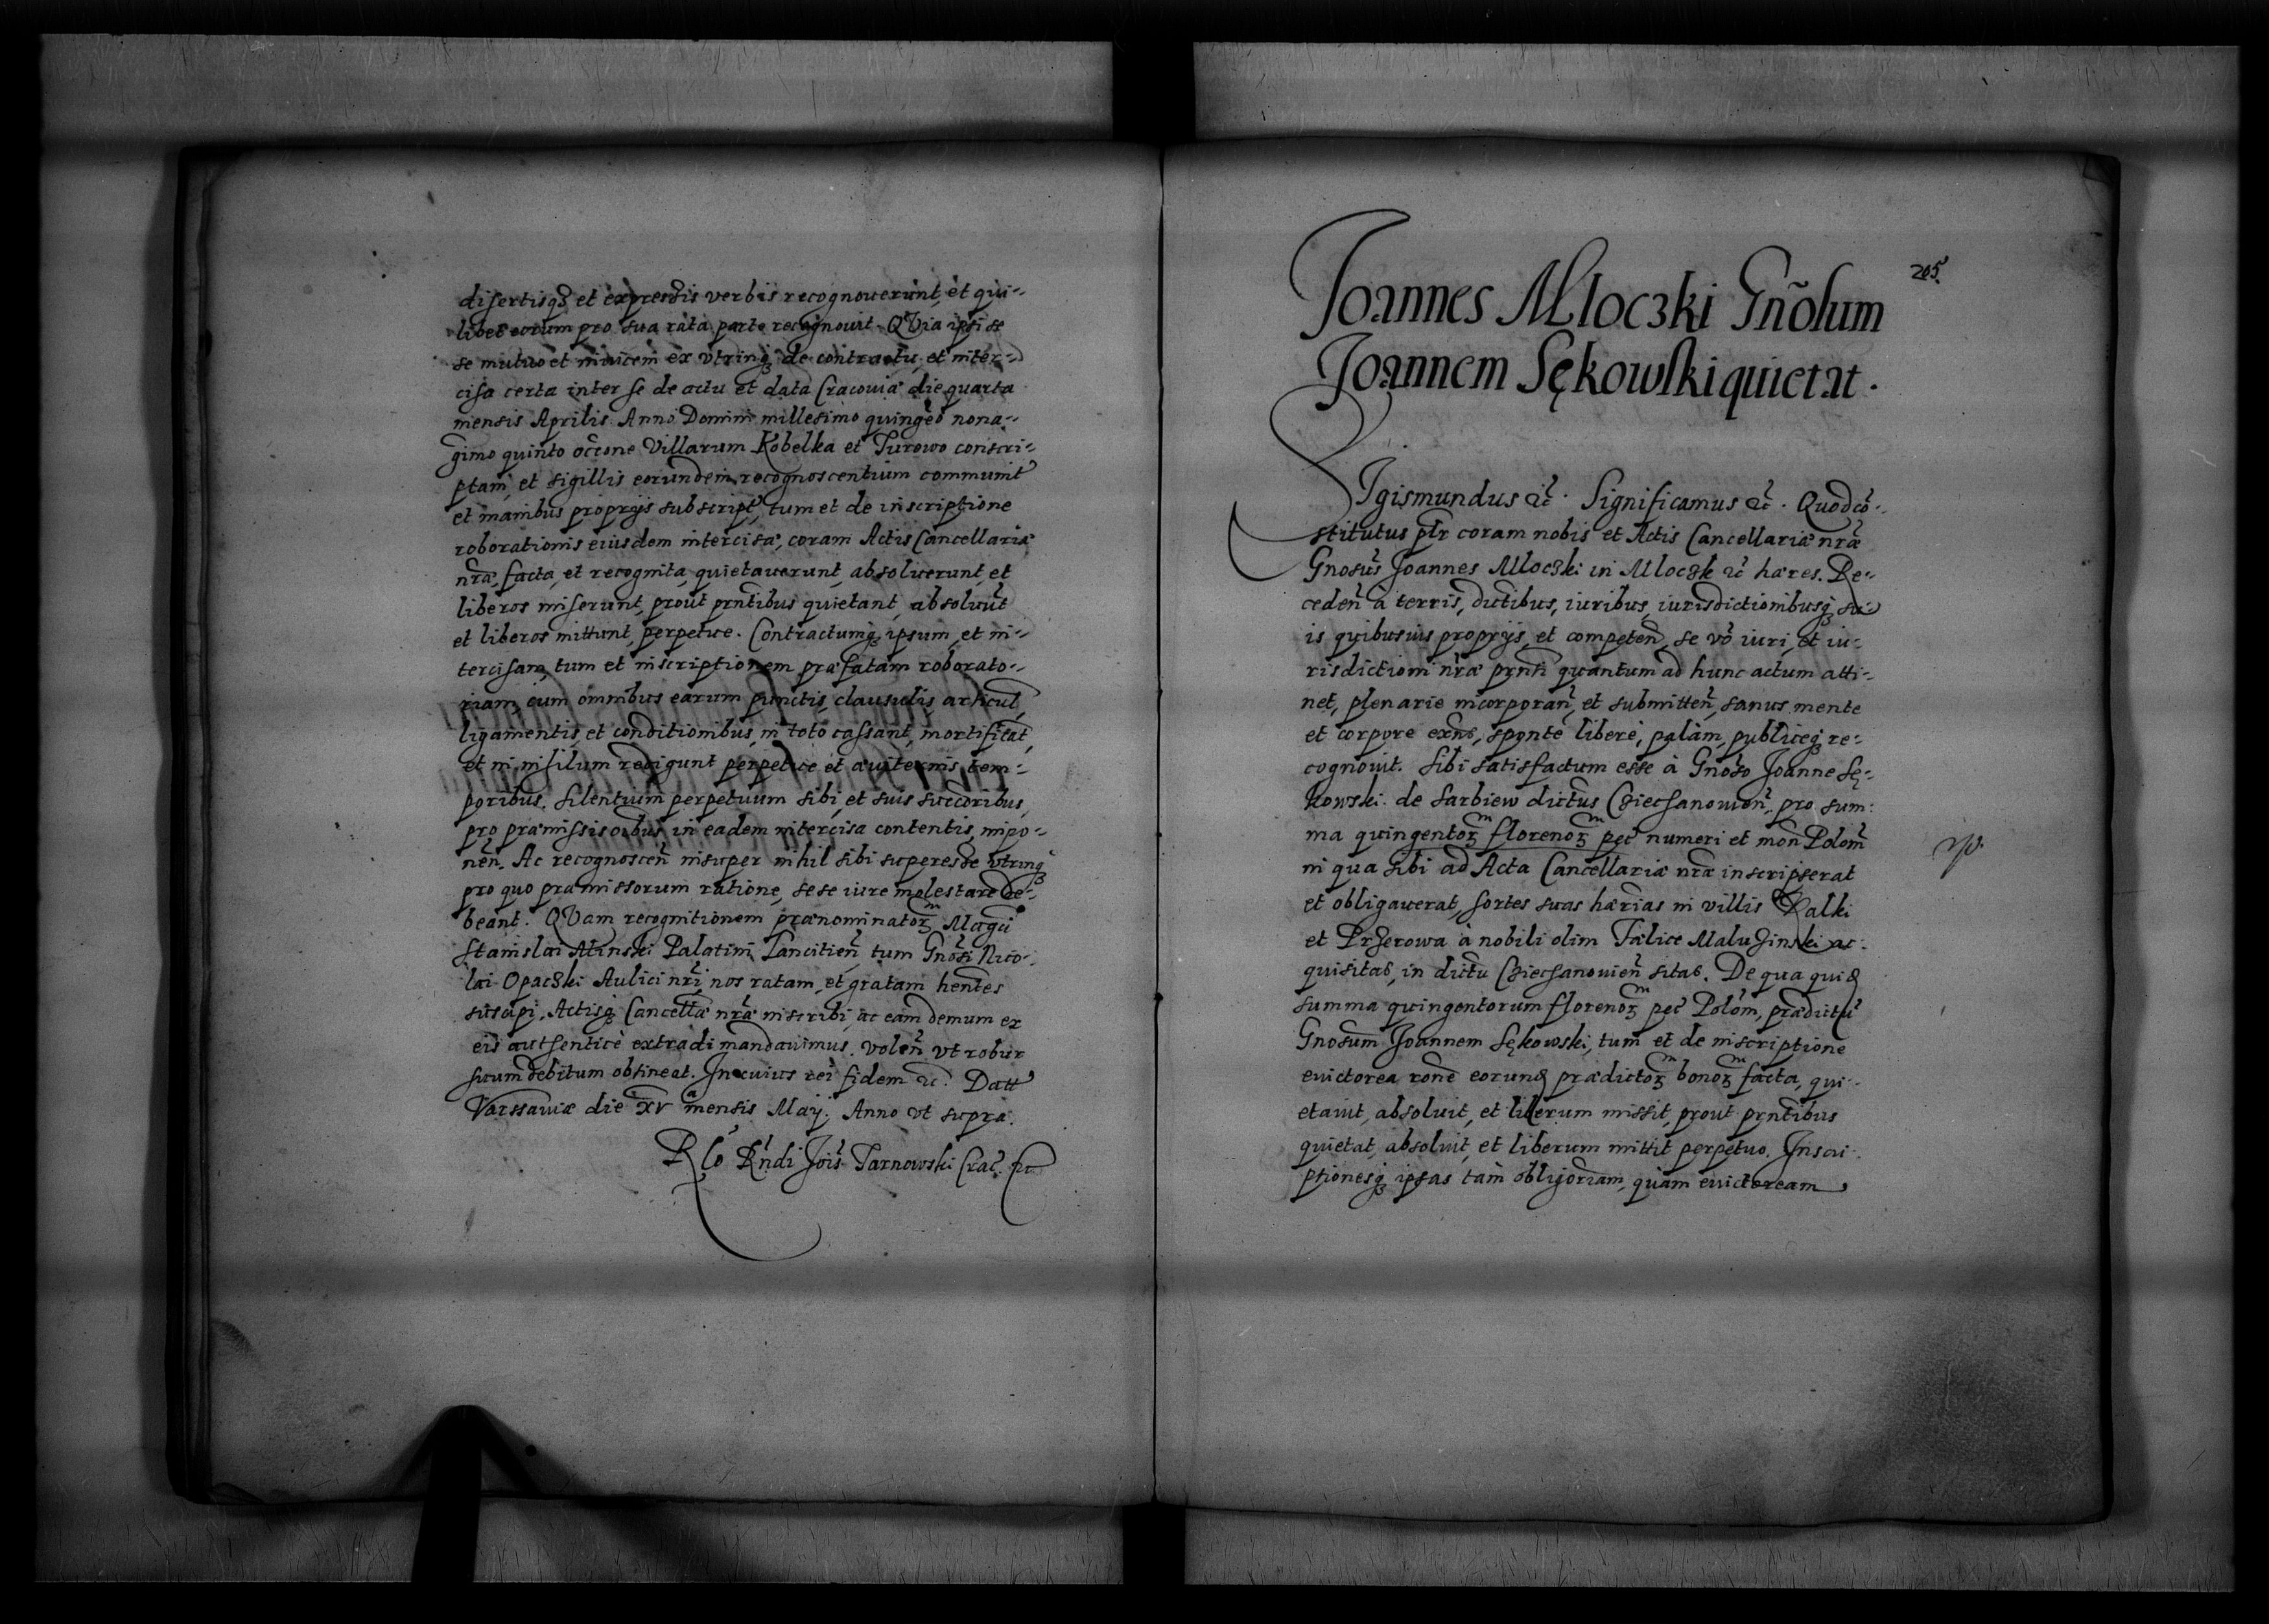 disertisq₃ et expressis verbis recognouerunt, et qui-
libet eorum pro sua rata parte recognouit. QVia ipsi se
se mutuo et inuicem ex vtrinq₃ de contractu, et inter-
cisa certa inter se de actu et data Cracouiæ die quarta
mensis Aprilis Anno Domini millesimo quingẽo nona-
gimo quinto occõne Villarum Kobelka et Turowo conscri-
ptam, et sigillis eorundem recognoscentium communit̃
et manibus proprijs subscript̃, tum et de inscriptione
roborationis eiusdem intercisæ, coram Actis Cancellariæ
nr̃æ, facta, et recognita, quietauerunt, absoluerunt, et
liberos miserunt, prout prñtibus quietant, absoluũt
et liberos mittunt, perpetue. Contractumq₃ ipsum, et in-
tercisam, tum et inscriptionem præfatam roborato-
riam, cum omnibus earum punctis, clausulis, articul̃,
ligamentis, et conditionibus, in toto cassant, mortificãt,
et in nihilum redigunt perpetue et æuiternis tem-
poribus. Silentium perpetuum sibi, et suis succc̃oribus,
pro præmissis oĩbus in eadem intercisa contentis, impo-
neñ. Ac recognosceñ insuper nihil sibi superesse vtrinq₃
pro quo præmissorum ratione, sese iure molestare de-
beant. QVam recognitionem prænominatorꝫ Magci
Stanislai Minski Palatini Lancitieñ, tum Gnõsi Nico-
lai Opaczki Aulici nr̃i, nos ratam, et gratam hentes
suscipi, Actisq₃ Cancellæ nr̃æ inscribi, ac eam demum ex
eis authentice extradi mandauimus. Voleñ vt robur
suum debitum obtineat. In cuius rei fidem ꝛc. Datt̃
Varssauiæ die xvᵃ mensis Maij. Anno vt supra.
Rlõ Rñdi Joiš Tarnowski Crac̃ ꝛc
205.
Joannes Mloczki Gñosum
Joannem Sękowski quietat.
SIgismundus ꝛc̃. Significamus ꝛc̃. Quod cõ-
stitutus plr̃ coram nobis et Actis Cancellariæ nr̃æ
Gnosus̃ Joannes Mloczki in Mloczk ꝛc̃ hæres. Re-
cedeñ a terris, dictibus, iuribus, iurisdictionibusq₃ su-
is quibusuis proprijs, et competeñ, se võ iuri, et iu-
risdictioni nr̃æ prñti quantum ad hunc actum atti-
net, plenarie incorporañ, et submitteñ, sanus mente
et corpore exñs, sponte libere, palàm, publiceq₃ re-
cognouit. Sibi satisfactum esse à Gnõso Joanne Sę-
kowski de Sarbiew dictus̃ Cziechanowieñ, pro sum-
ma quingentorꝫ florenorꝫ pec̃ numeri et moñ Poloñ
in qua sibi ad Acta Cancellariæ nr̃æ inscripserat
et obligauerat, sortes suas hær̃ias in villis Kalki
et Przerowa à nobili olim Fælice Maluszinski ac-
quisitas, in dictũ Cziechanouieñ sitas. De qua quiđ
summa quingentorum florenorꝫ pec̃ Poloñ, prædictũ
Gnosum Joannem Sękowski, tum et de inscriptione
euictorea ronẽ eorunđ prædictorꝫ bonorꝫ facta, qui-
etauit, absoluit, et liberum missit, prout prñtibus
quietat, absoluit, et liberum mittit perpetuo. Inscri-
ptionesq₃ ipsas tàm obligõriam, quàm euictoream